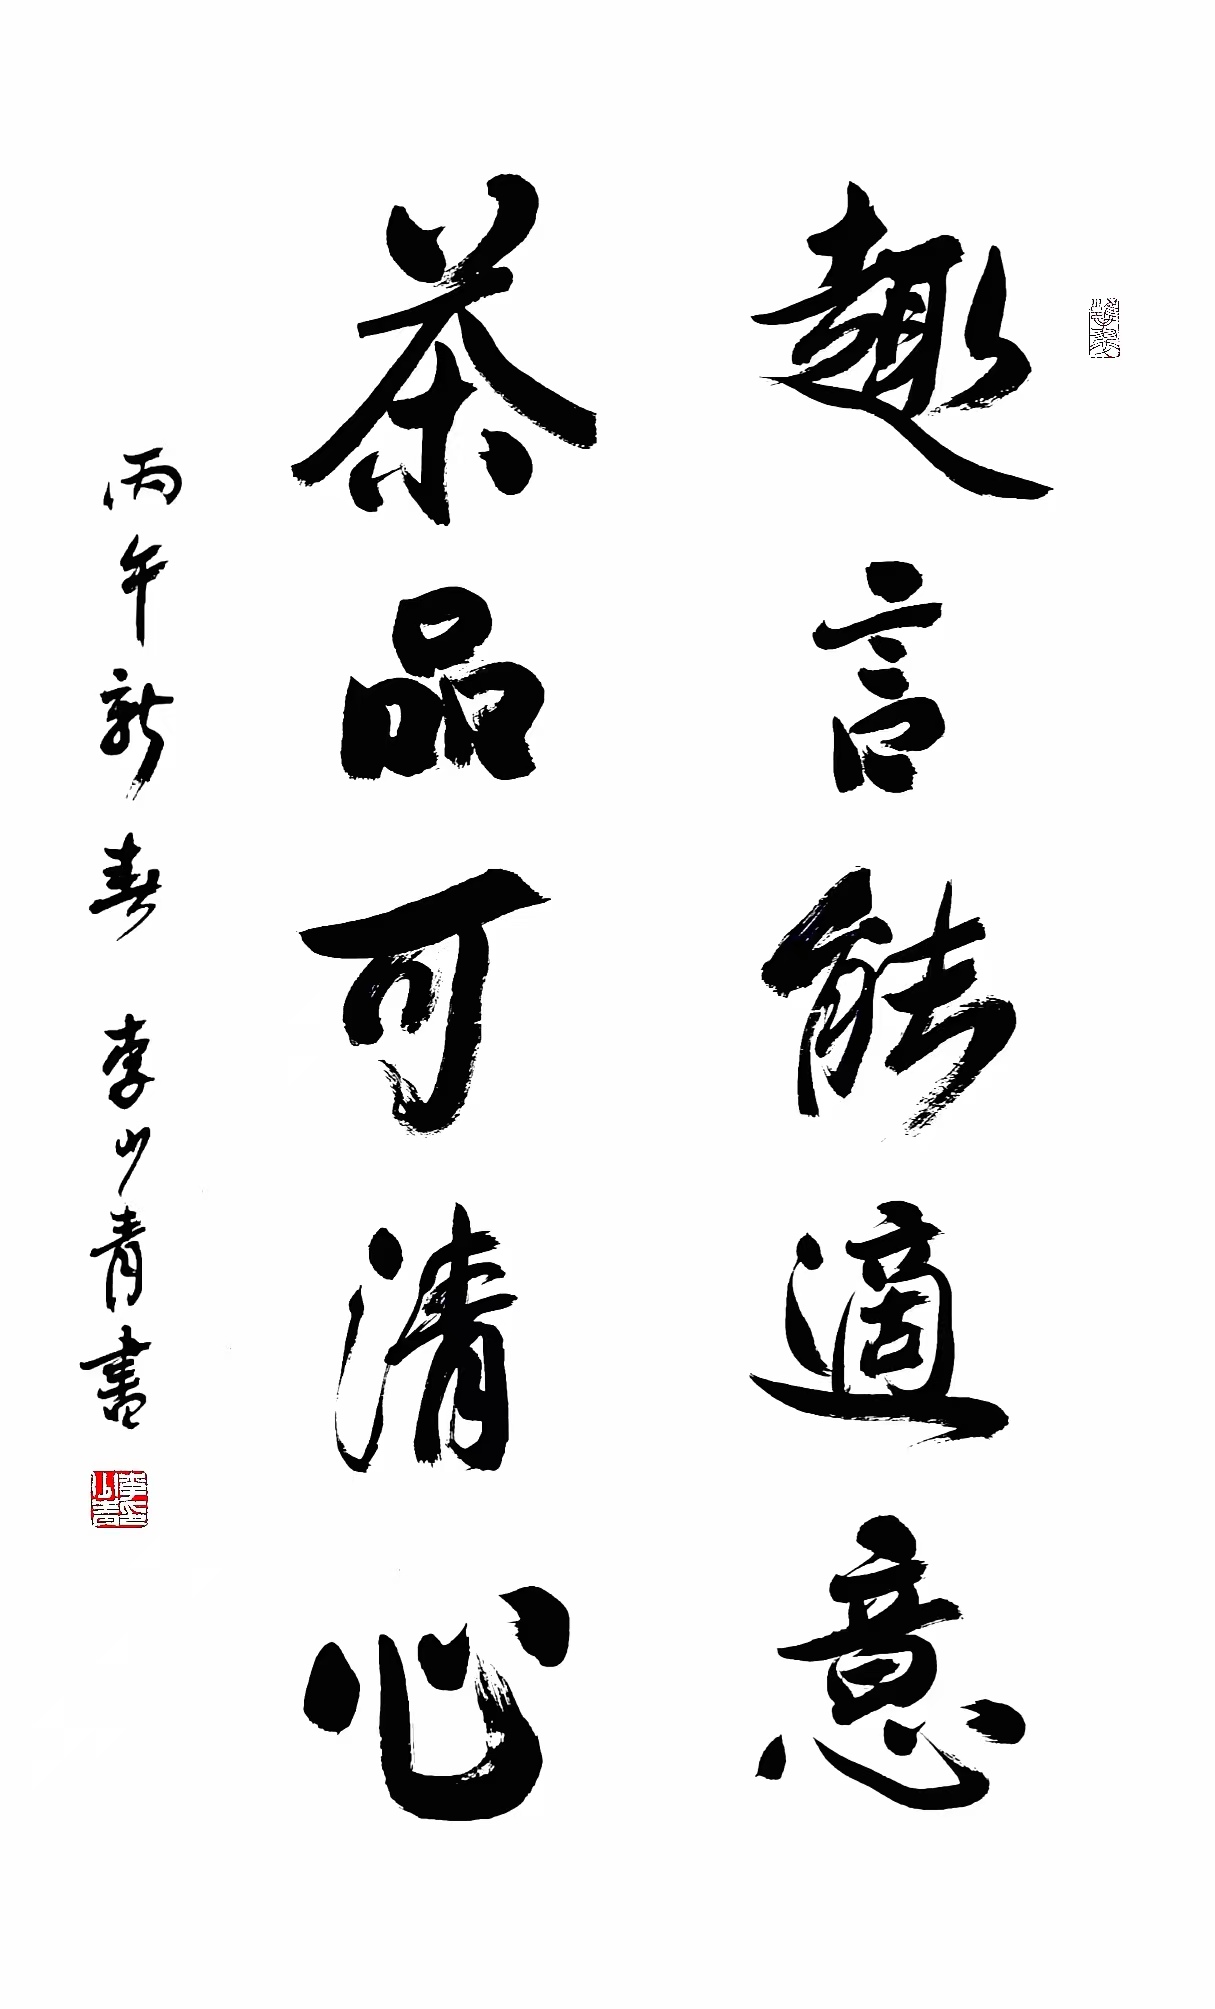 趣言能適意
茶品可清心
丙午新春 李少青書